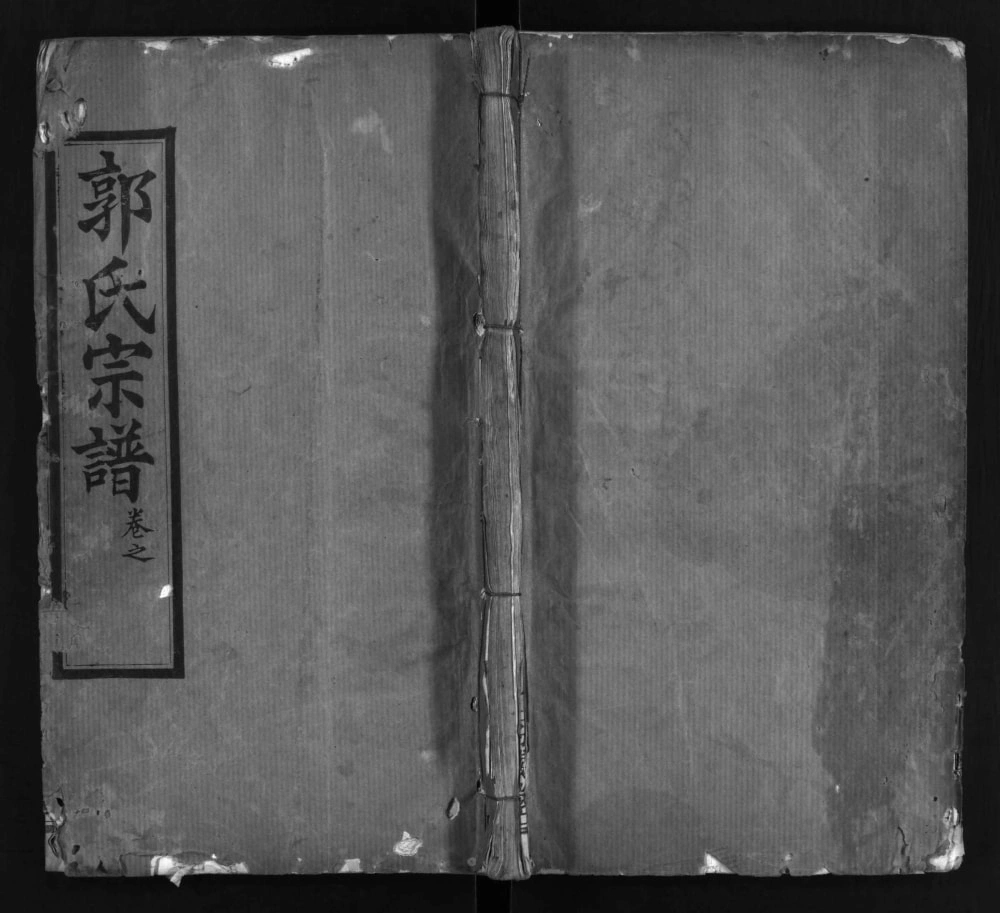 郭氏宗譜
卷之